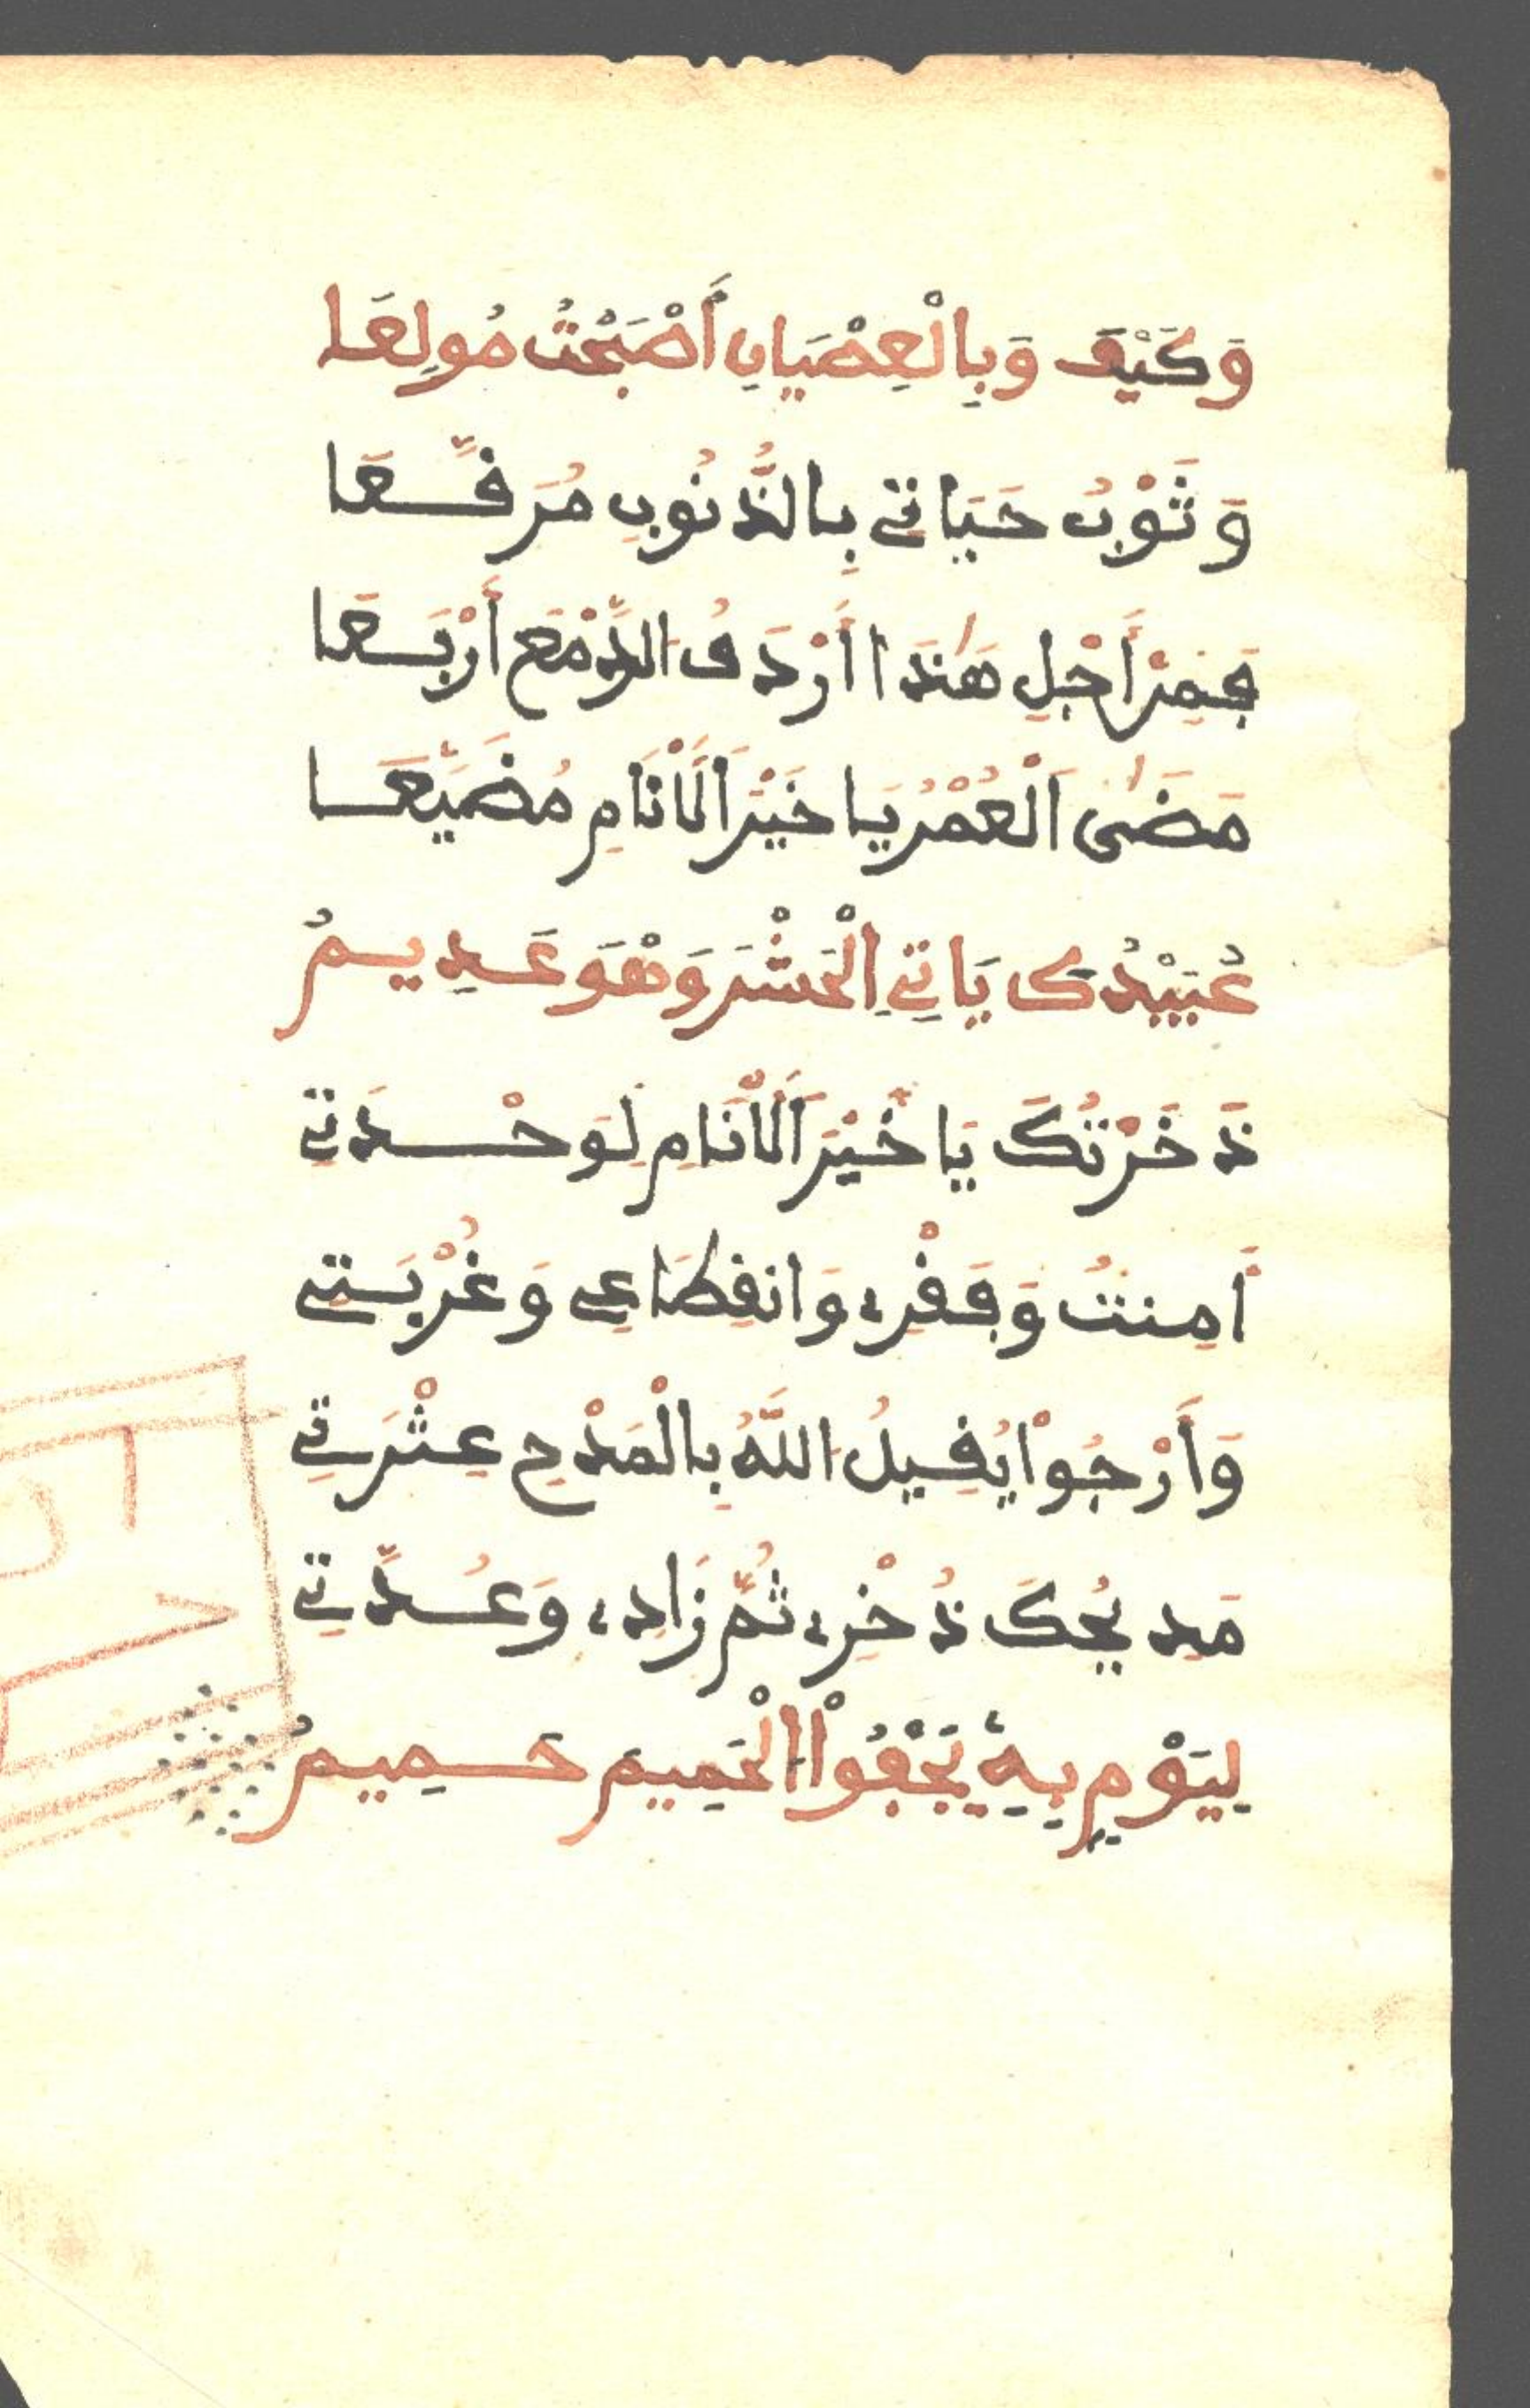 وَكَيْفَ وَبِالْعِصْيَانِ أَصْبَحْتُ مُولِعَا
وَثَوْبُ حَيَاتِي بِالذُّنُوبِ مُرَقَّعَا
فَمِنْ أَجْلِ هَٰذَا أَرْدَفُ الدَّمْعَ أَرْبَعَا
مَضَىٰ اَلْعُمْرُ يَا خَيْرَ اَلْأَنَامِ مُضَيَّعَا
عُبَيْدُكَ يَاتِي اِلْحَشْرَ وَهْوَ عَدِيمُ
ذَخَرْتُكَ يَا خَيْرَ اَلْأَنَامِ لِوَحْدَتِي
أَمِنتُ وَفَقْرِي وَانقِطَاعِي وَغُرْبَتِي
وَأَرْجُواْ يُقِيلُ اللَّهُ بِالْمَدْحِ عِثْرَتِي
مَدِيحُكَ ذُخْرِي ثُمَّ زَادِي وَعُدَّتِي
لِيَوْمٍ بِهِ يَجْفُواْ الْحَمِيمَ حَمِيمُ